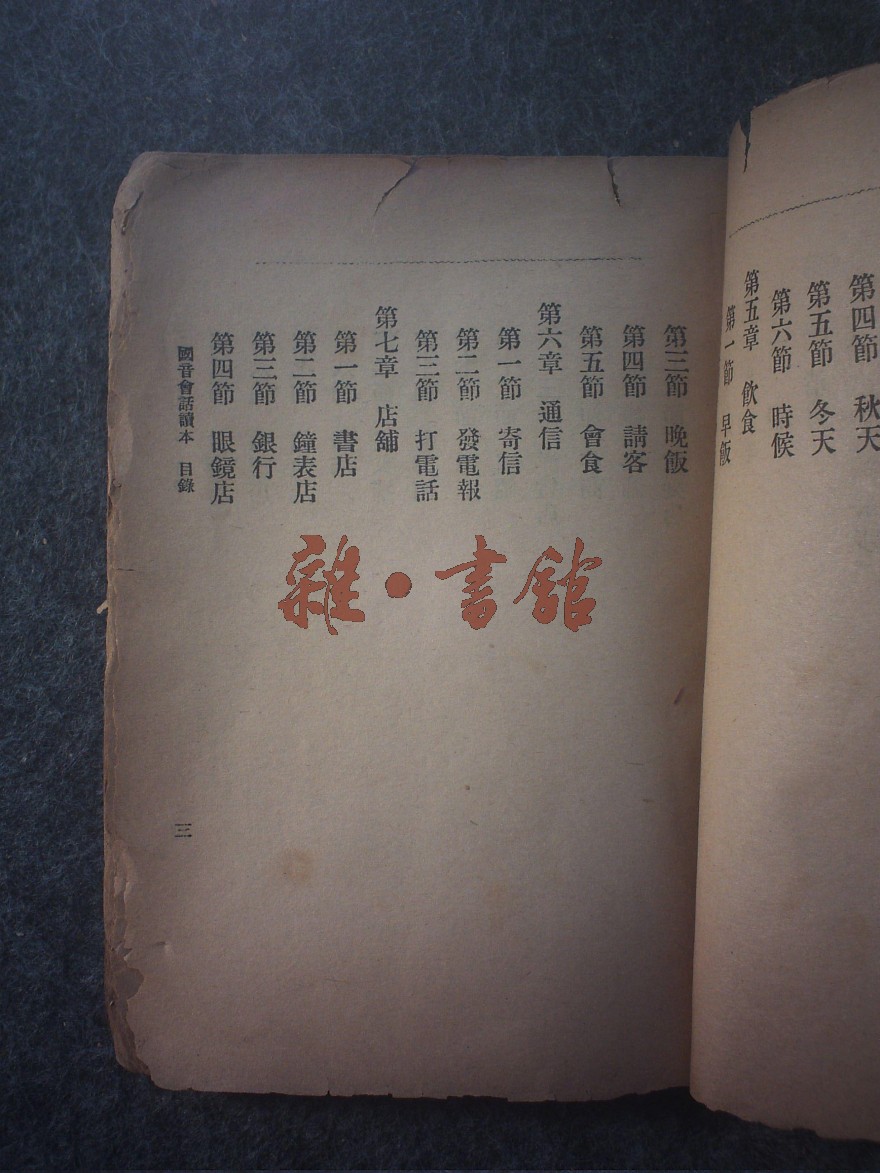 第四節　秋天
第五節　冬天
第六節　時候
第五章　飲食
第一節　早飯
第三節　晚飯
第四節　請客
第五節　會食
第六章　通信
第一節　寄信
第二節　發電報
第三節　打電話
第七章　店舖
第一節　書店
第二節　鐘表店
第三節　銀行
第四節　眼鏡店
國音會話讀本　目錄
三
雜·書館